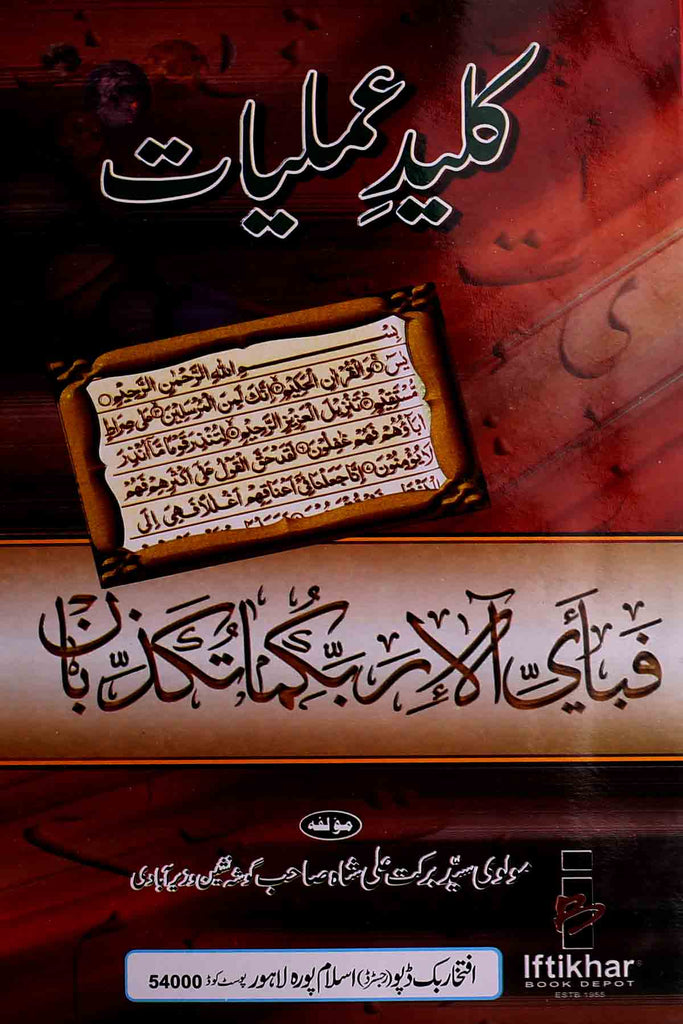 کلیدِ عملیات
بِسْمِ اللهِ الرَّحْمٰنِ الرَّحِيْمِ
يٰسٓ وَالْقُرْاٰنِ الْحَكِيْمِ اِنَّكَ لَمِنَ الْمُرْسَلِيْنَ عَلٰى صِرَاطٍ
مُّسْتَقِيْمٍ تَنْزِيْلَ الْعَزِيْزِ الرَّحِيْمِ لِتُنْذِرَ قَوْمًا مَّا اُنْذِرَ
اٰبَآؤُهُمْ فَهُمْ غٰفِلُوْنَ لَقَدْ حَقَّ الْقَوْلُ عَلٰٓى اَكْثَرِهِمْ فَهُمْ
لَا يُؤْمِنُوْنَ اِنَّا جَعَلْنَا فِيْٓ اَعْنَاقِهِمْ اَغْلٰلًا فَهِيَ اِلَى
فَبِأَيِّ آلَاءِ رَبِّكُمَا تُكَذِّبَانِ
مؤلفہ
مولوی سیّد برکت علی شاہ صاحب گوشہ نشین وزیرآبادی
افتخار بک ڈپو (رجسٹرڈ) اسلام پورہ لاہور پوسٹ کوڈ 54000
Iftikhar®
BOOK DEPOT
ESTB 1955